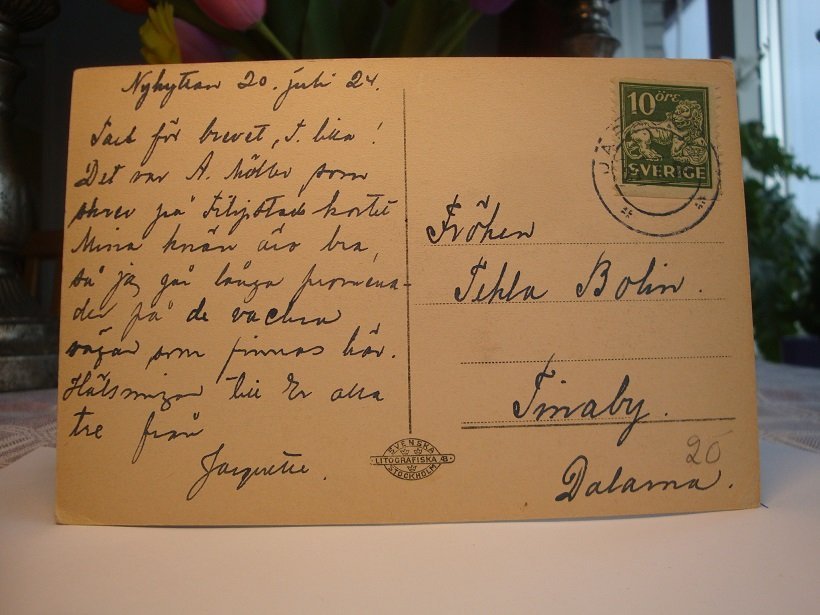 Nyhyttan 20. juli 24.
Tack för brevet, T. lilla!
Det var A. Möller som
skrev på Filipstads kortet
Mina knän äro bra,
så jag går långa promena-
der på de vackra
vägar som finnas här.
Hälsningar till Er alla
tre från
10 ÖRE
SVERIGE
JÄR
Fröken
Tekla Bolin.
Finaby.
Dalarna.
20
SVENSKA
LITOGRAFISKA AB
STOCKHOLM